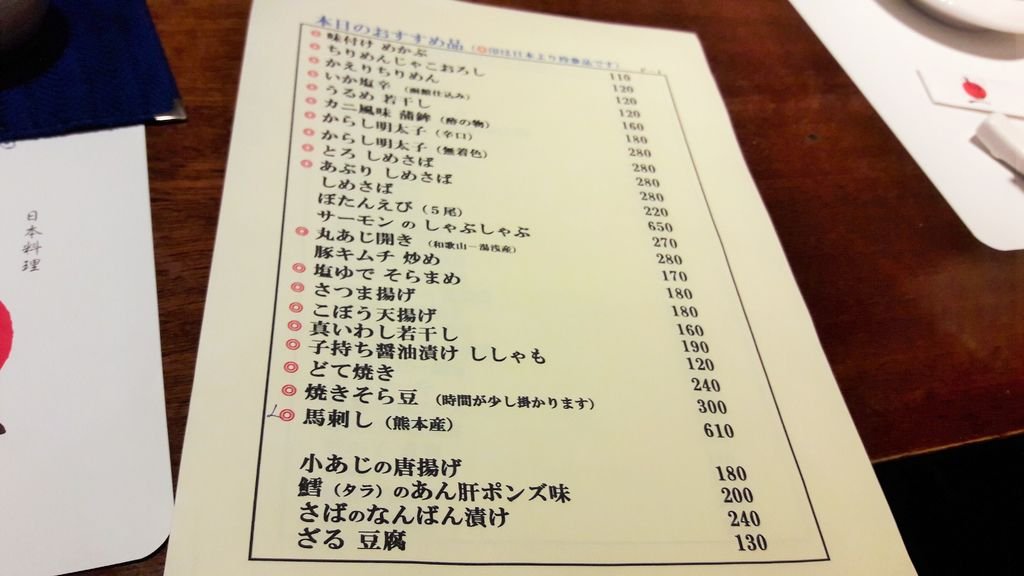 本日のおすすめ品（◎印は日本より持参品です）
◎味付け めかぶ 110
◎ちりめんじゃこおろし 120
◎かえりちりめん 120
◎いか塩辛 120
◎うるめ 若干し 160
◎カニ風味 蒲鉾（酢の物） 180
◎からし明太子（辛口） 280
◎からし明太子（無着色） 280
◎とろ しめさば 280
◎あぶり しめさば 280
しめさば 220
ぼたんえび（5尾） 650
サーモン の しゃぶしゃぶ 270
◎丸あじ開き（和歌山－湯浅産） 280
豚キムチ 炒め 170
◎塩ゆで そらまめ 180
◎さつま揚げ 180
◎こぼう天揚げ 160
◎真いわし若干し 190
◎子持ち醤油漬け ししゃも 120
◎どて焼き 240
◎焼きそら豆（時間が少し掛かります） 300
◎馬刺し（熊本産） 610
小あじの唐揚げ 180
鱈（タラ）のあん肝ポンズ味 200
さばのなんばん漬け 240
ざる 豆腐 130
日本料理